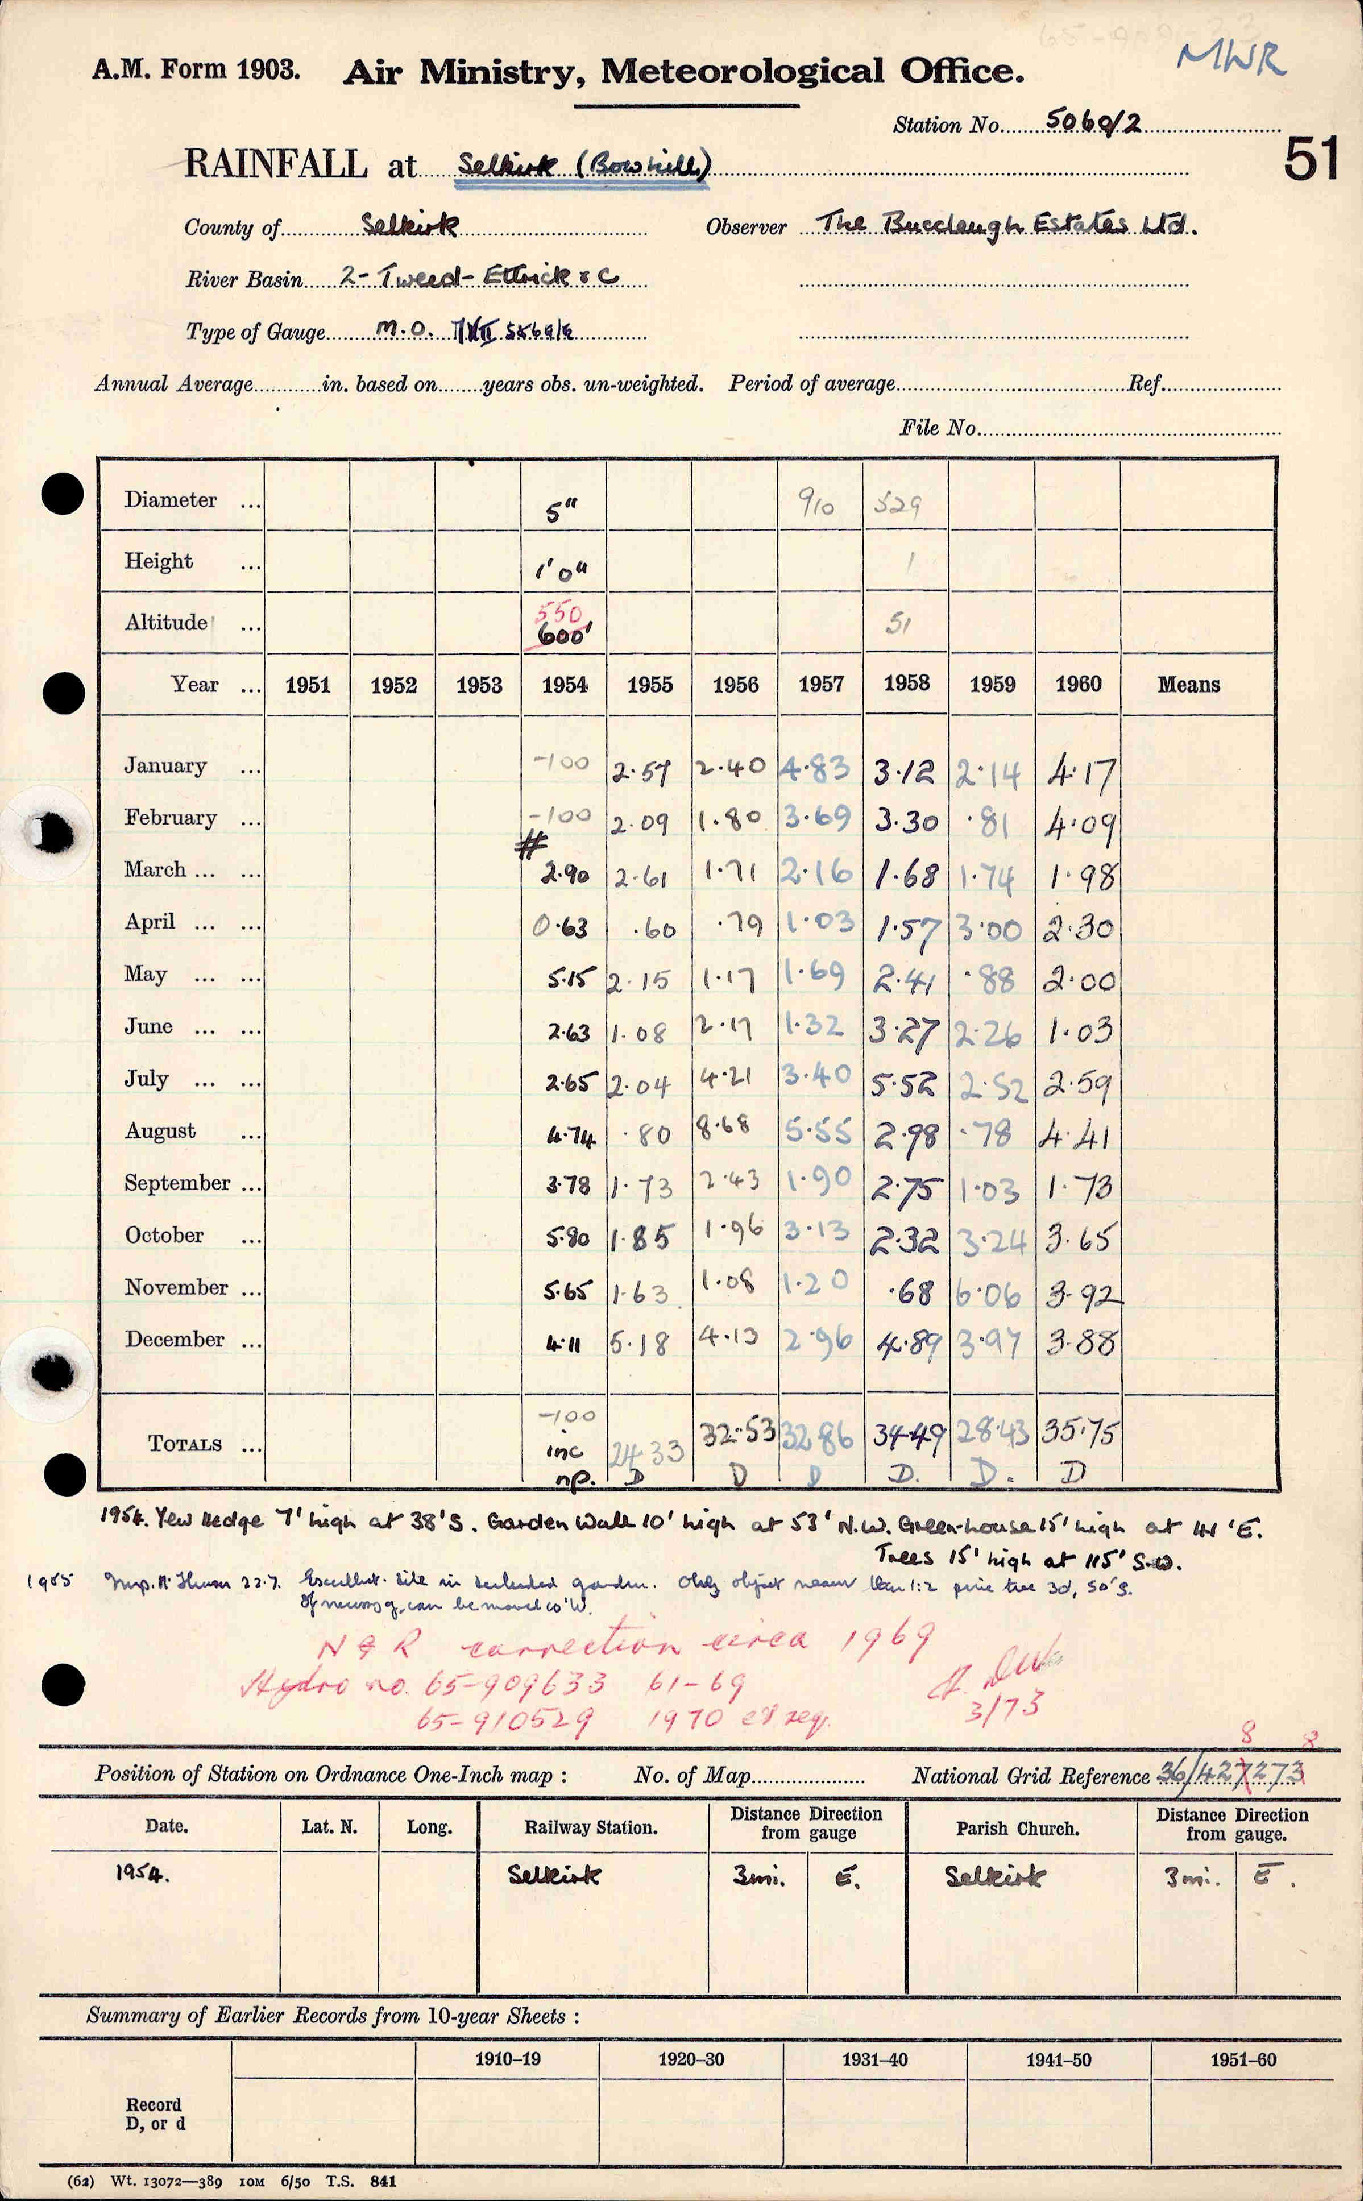 MWR
A.M. Form 1903. Air Ministry, Meteorological Office.
Station No. 5060/2
51
RAINFALL at Selkirk (Bowhill)
County of Selkirk Observer The Buccleugh Estates Ltd.
River Basin 2- Tweed- Ettrick & C
Type of Gauge M.O.
Annual Average in. based on years obs. un-weighted. Period of average Ref.
File No.
Diameter ... 5" 910 529
Height ... 1'0" 1
Altitude ... 550 600' 51
Year ... 1951 1952 1953 1954 1955 1956 1957 1958 1959 1960 Means
January ... -100 2.57 2.40 4.83 3.12 2.14 4.17
February ... -100 2.09 1.80 3.69 3.30 .81 4.09
#
March ... ... 2.90 2.61 1.71 2.16 1.68 1.74 1.98
April ... ... 0.63 .60 .79 1.03 1.57 3.00 2.30
May ... ... 5.15 2.15 1.17 1.69 2.41 .88 2.00
June ... ... 2.63 1.08 2.17 1.32 3.27 2.26 1.03
July ... ... 2.65 2.04 4.21 3.40 5.52 2.52 2.59
August ... 4.74 .80 8.68 5.55 2.98 .78 4.41
September ... 3.78 1.73 2.43 1.90 2.75 1.03 1.73
October ... 5.80 1.85 1.96 3.13 2.32 3.24 3.65
November ... 5.65 1.63 1.08 1.20 .68 6.06 3.92
December ... 4.11 5.18 4.13 2.96 4.89 3.97 3.88
-100
TOTALS ... inc 24 33 32.53 32 86 34.49 28.43 35.75
np. D D D D. D. D
1954. Yew Hedge 7' high at 38'S. Garden Wall 10' high at 53' N.W. Green-house 15' high at 44'E.
Trees 15' high at 115' S.W.
1955 Insp. 22.7. Excellent site in secluded garden. Only object nearer than 1:2 pine tree 30', 50'S.
If necessary, can be moved 10'W.
N G R correction circa 1969
Hydro no. 65-909633 61-69
65-910529 1970 et seq.
3/73
8 8
Position of Station on Ordnance One-Inch map : No. of Map National Grid Reference 36/427273
Date. Lat. N. Long. Railway Station. Distance Direction from gauge Parish Church. Distance Direction from gauge.
1954. Selkirk 3mi. E. Selkirk 3mi. E.
Summary of Earlier Records from 10-year Sheets :
1910–19 1920–30 1931–40 1941–50 1951–60
Record
D, or d
(62) Wt. 13072—389 10M 6/50 T.S. 841